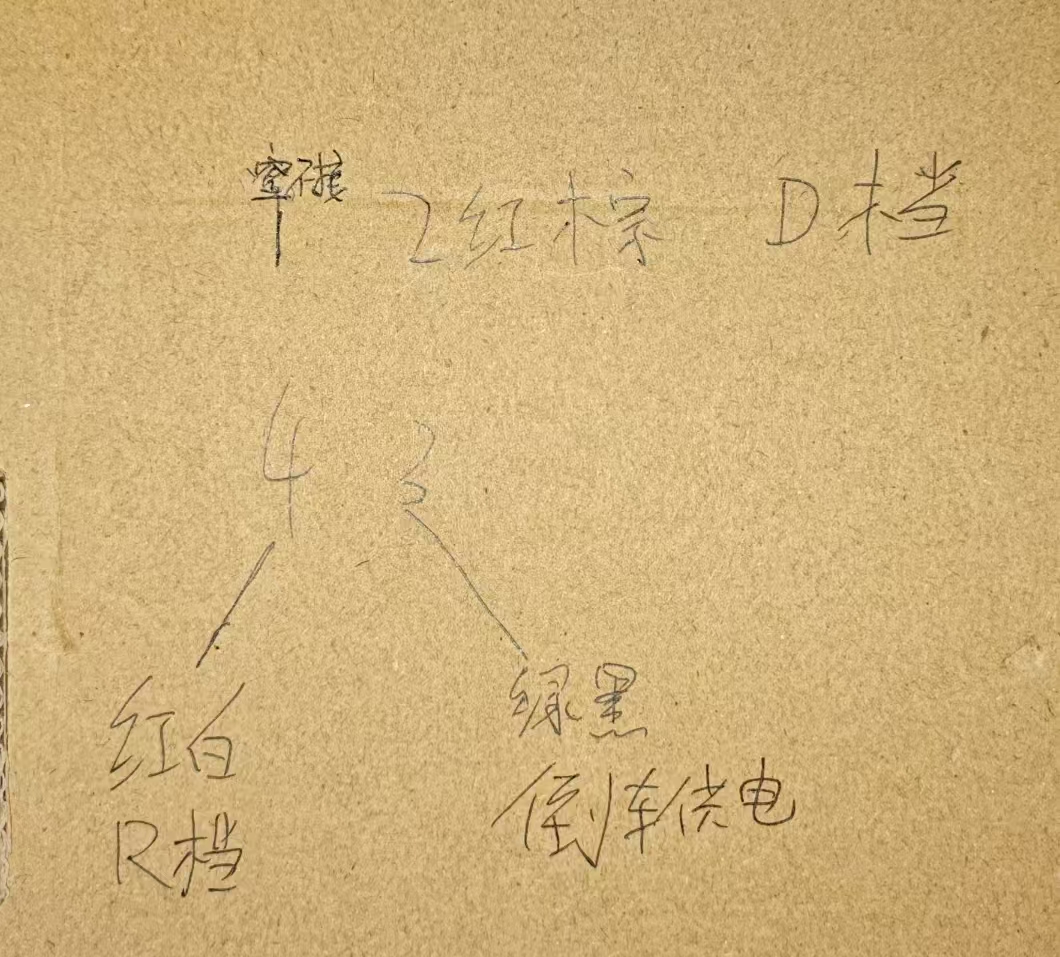 2 红棕 D档
4 3
红白 绿黑
倒车供电
R档